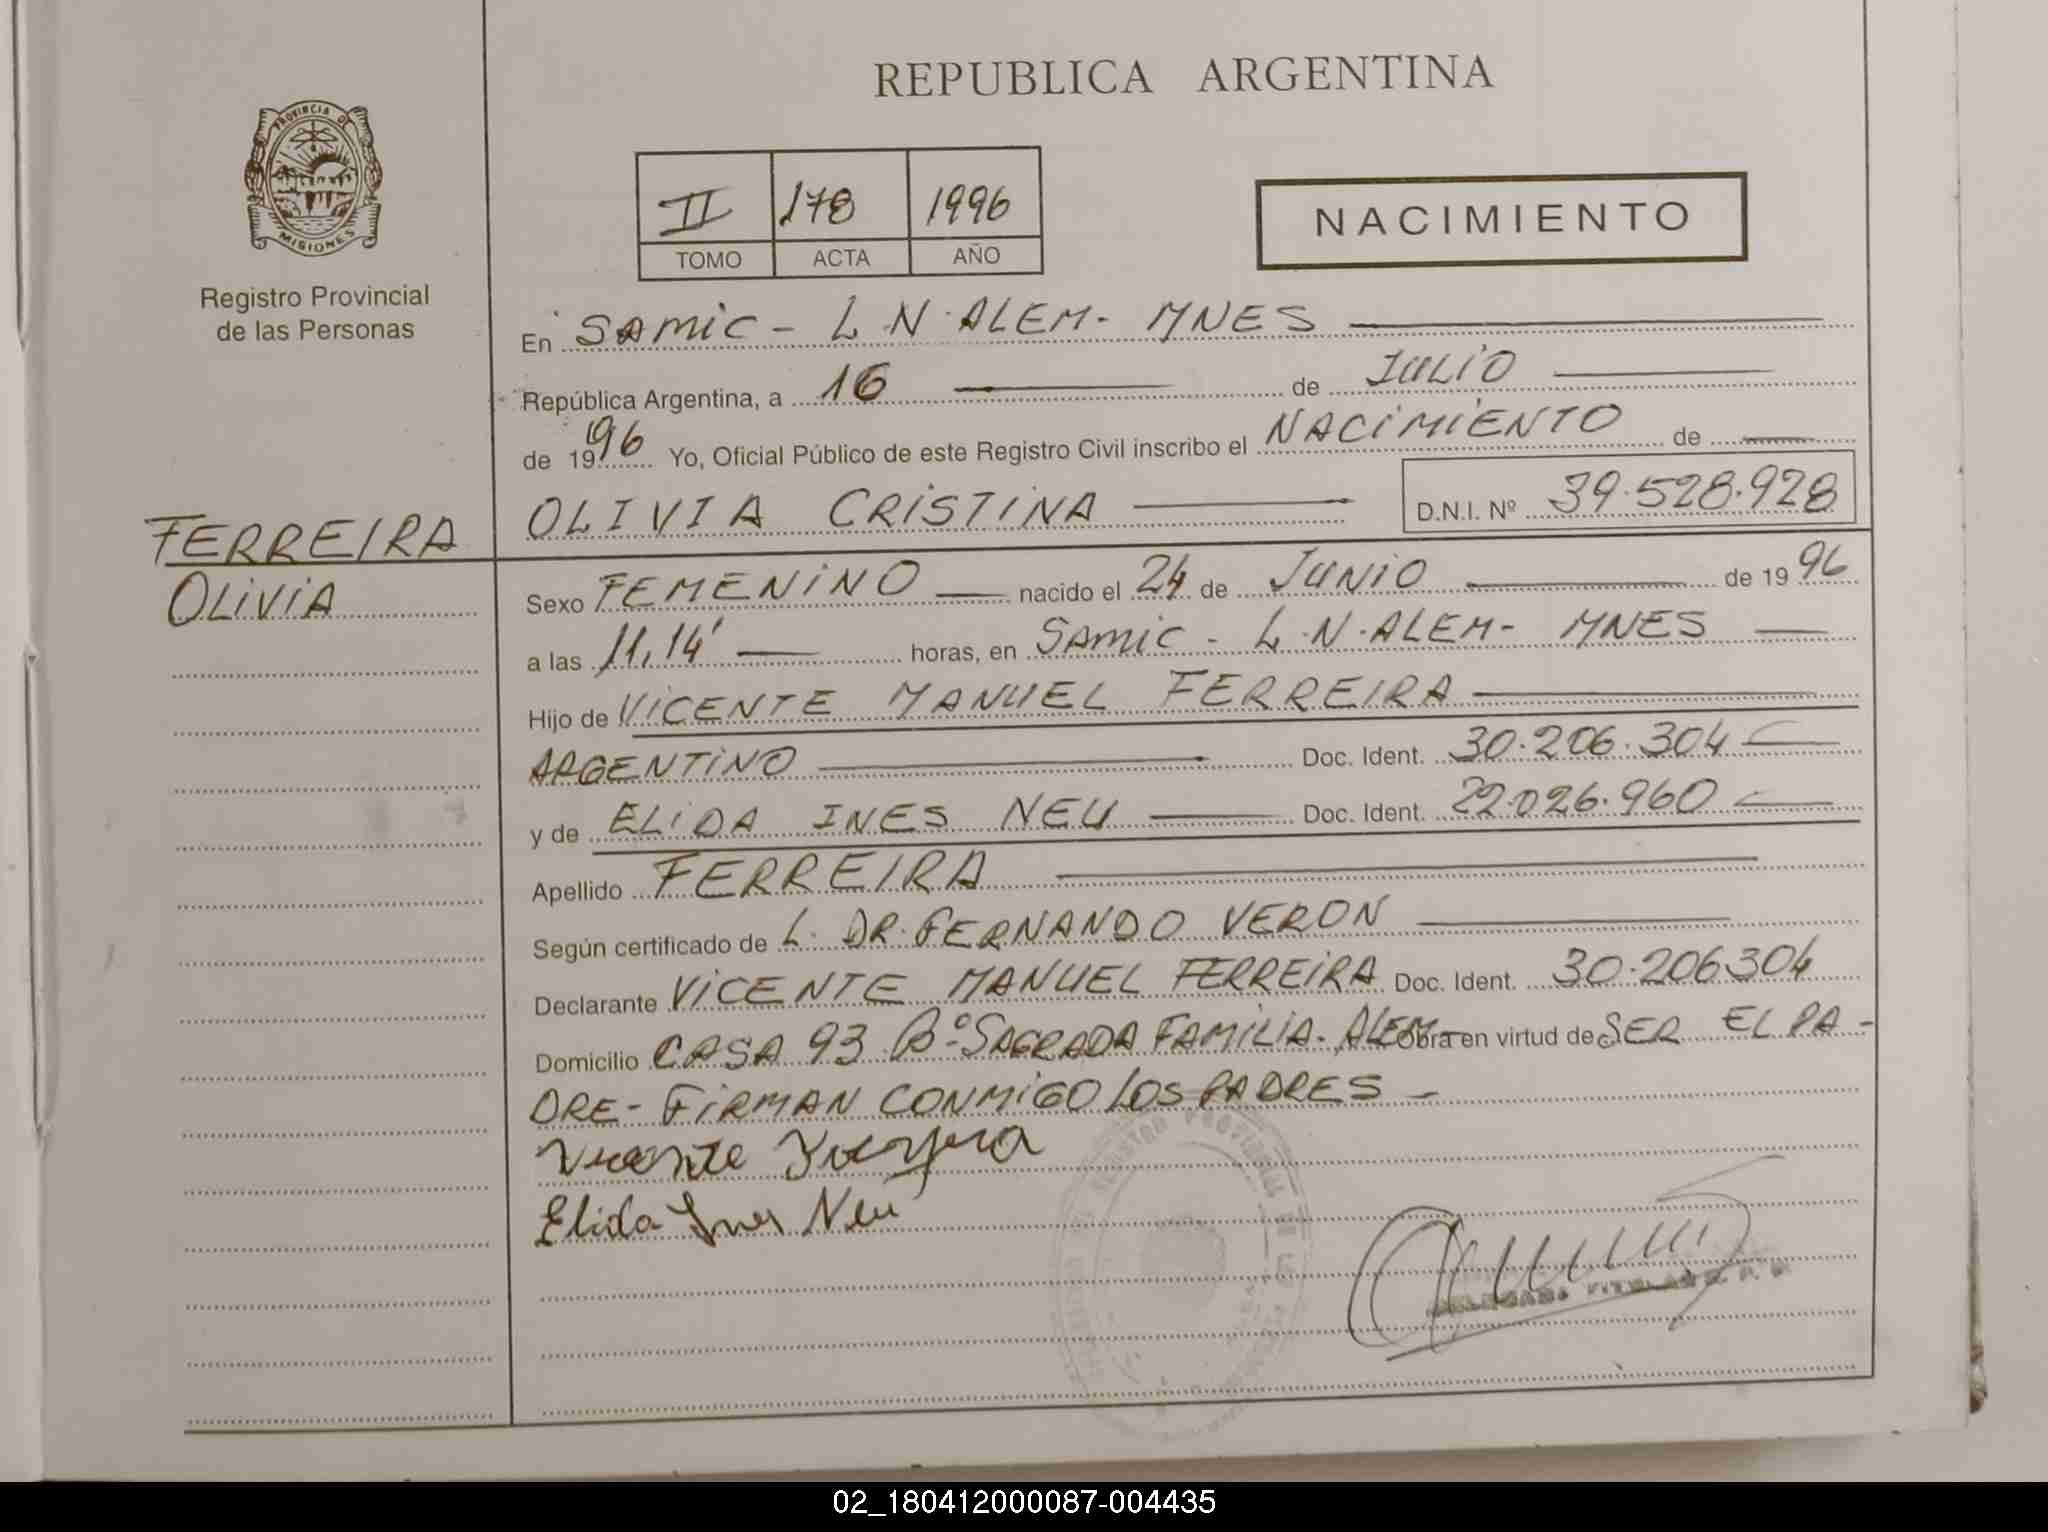 REPUBLICA ARGENTINA
PROVINCIA DE
MISIONES
Registro Provincial
de las Personas
II 178 1996
TOMO ACTA AÑO
NACIMIENTO
En SAMIC - L.N. ALEM - MNES
República Argentina, a 16 de JULIO
de 1996 Yo, Oficial Público de este Registro Civil inscribo el NACIMIENTO de
OLIVIA CRISTINA D.N.I. Nº 39.528.928
FERREIRA
OLIVIA
Sexo FEMENINO nacido el 24 de JUNIO de 1996
a las 11,14' horas, en SAMIC - L.N. ALEM - MNES
Hijo de VICENTE MANUEL FERREIRA
ARGENTINO Doc. Ident. 30.206.304
y de ELIDA INES NEU Doc. Ident. 22.026.960
Apellido FERREIRA
Según certificado de L. DR. FERNANDO VERON
Declarante VICENTE MANUEL FERREIRA Doc. Ident. 30.206304
Domicilio CASA 93 Bº SAGRADA FAMILIA. ALEM Obra en virtud de SER EL PA-
DRE - FIRMAN CONMIGO LOS PADRES -
Vicente
Elida Ines Neu
REGISTRO PROVINCIAL DE
02_180412000087-004435